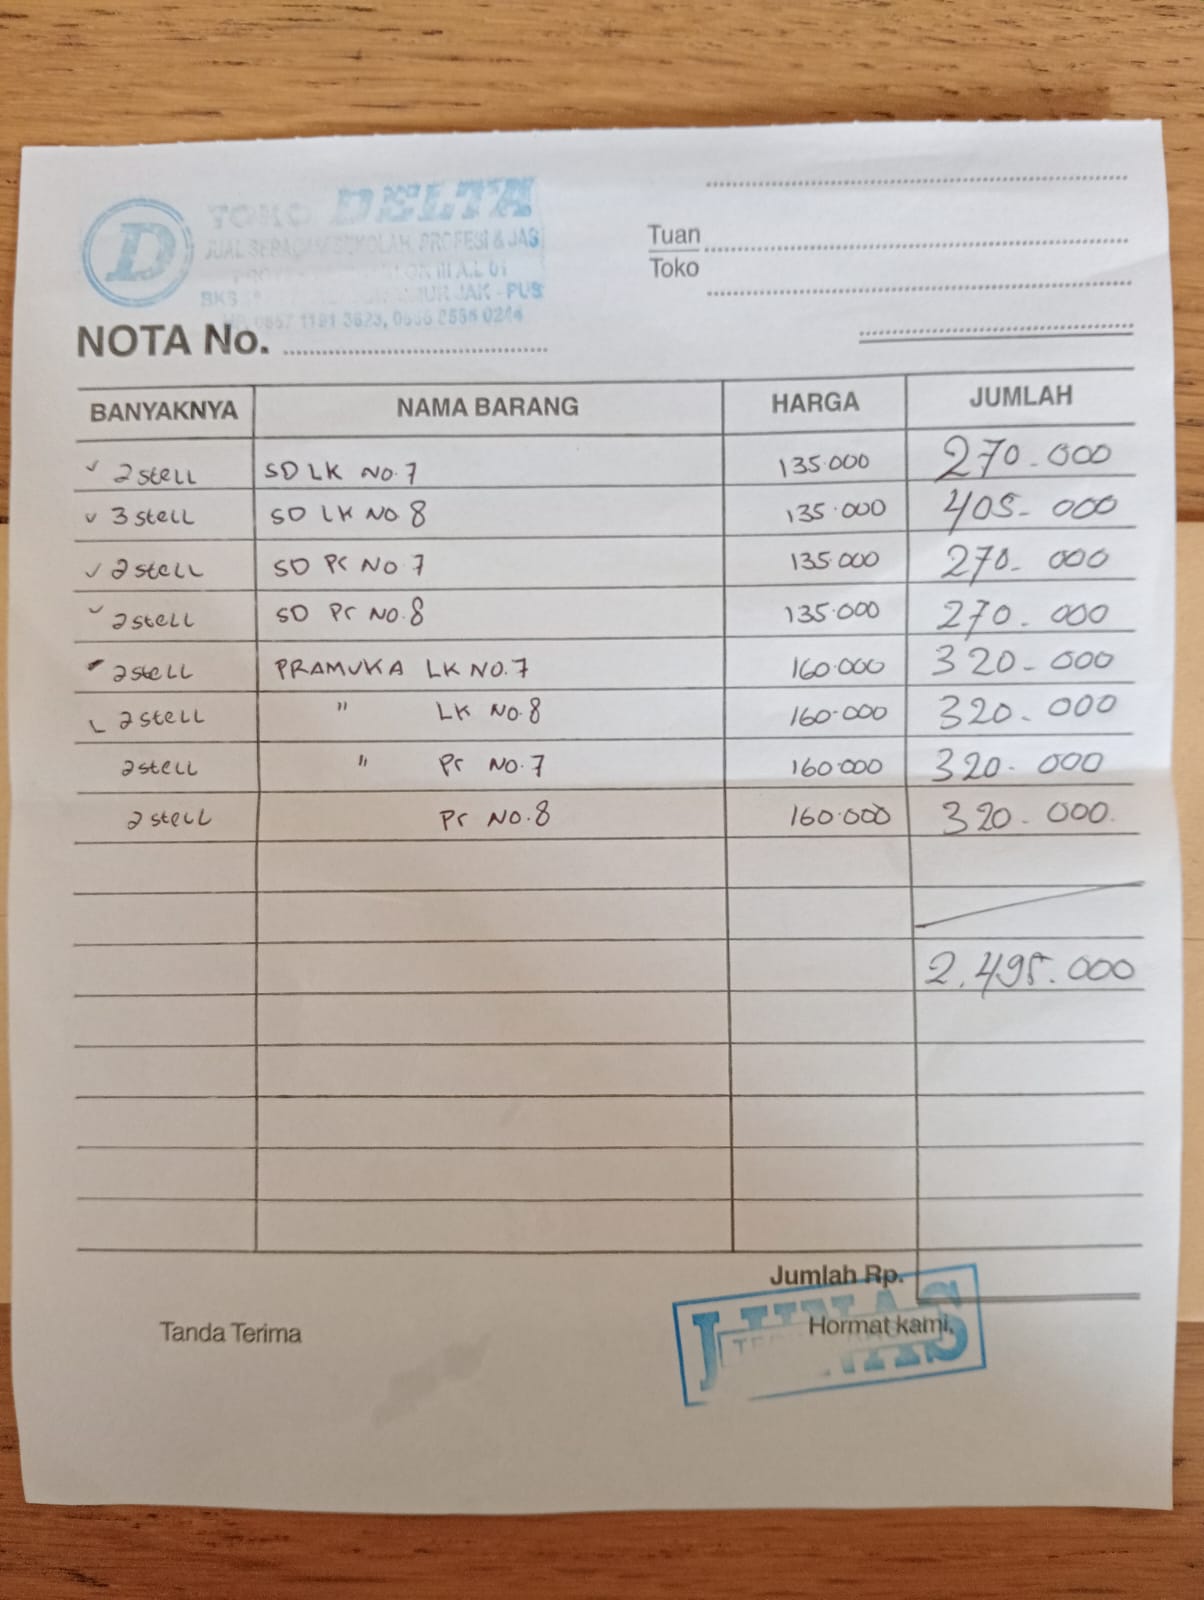 D
TOKO DELTA
JUAL SERAGAM SEKOLAH, PROFESI & JAS
III A.L 01
BKS JAK - PUS
0857 1191 3623,
Tuan
Toko
NOTA No.
BANYAKNYA NAMA BARANG HARGA JUMLAH
2 stell SD LK No.7 135.000 270.000
3 stell SD LK NO 8 135.000 405.000
2 stell SD Pr NO 7 135.000 270.000
2 stell SD Pr NO.8 135.000 270.000
2 stell PRAMUKA LK NO.7 160.000 320.000
2 stell " LK NO.8 160.000 320.000
2 stell " Pr NO.7 160.000 320.000
2 stell Pr NO.8 160.000 320.000
2.495.000
Jumlah Rp.
Tanda Terima Hormat kami,
LUNAS